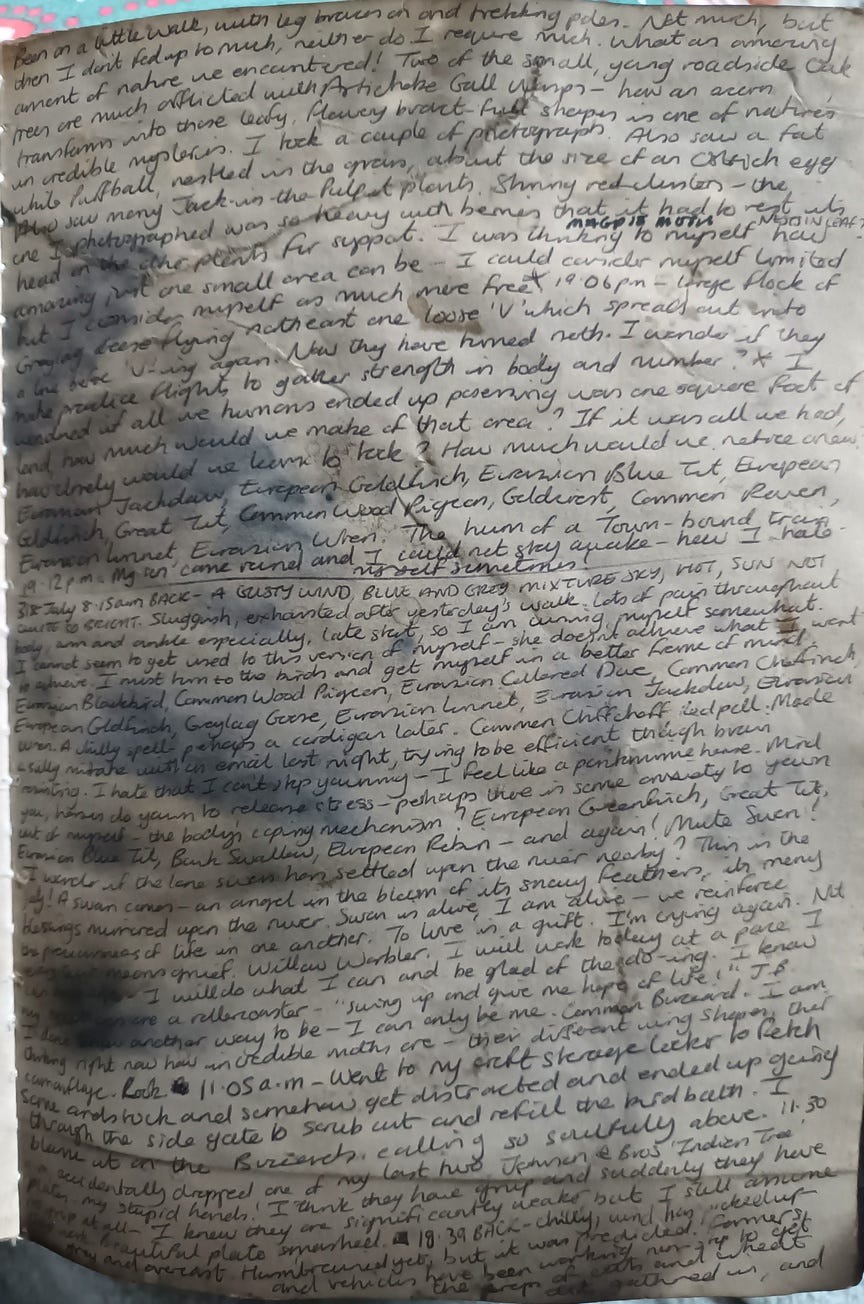 Been on a little walk, with leg braces on and trekking poles. Not much, but
then I don't feel up to much, neither do I require much. What an amazing
amount of nature we encountered! Two of the small, young roadside Oak
trees are much afflicted with Artichoke Gall Wasps - how an acorn
transforms into those leafy, flowery bract-full shapes is one of nature's
incredible mysteries. I took a couple of photographs. Also saw a fat
white Puffball, nestled in the grass, about the size of an Ostrich egg
Also saw many Jack-in-the-Pulpit plants. Shining red clusters - the
one I photographed was so heavy with berries that it had to rest its
MAGPIE MOTH
head on the other plants for support. I was thinking to myself how
amazing just one small area can be - I could consider myself limited
but I consider myself as much more free * 19.06pm - Large flock of
Greylag Geese flying northeast one loose 'V' which spreads out into
a line before 'V'-ing again. Now they have turned north. I wonder if they
make practice flights, to gather strength in body and number? * I
wondered if all we humans ended up possessing was one square foot of
land, how much would we make of that area? If it was all we had,
how closely would we learn to look? How much would we notice anew
Eurasian Jackdaw, European Goldfinch, Eurasian Blue Tit, European
Goldfinch, Great Tit, Common Wood Pigeon, Goldcrest, Common Raven,
Eurasian Linnet, Eurasian Wren. The hum of a Town-bound train
19.12pm. My son came round and I could not stay awake - how I hate
myself sometimes
31st July 8.15am BACK - A GUSTY WIND, BLUE AND GREY MIXTURE SKY, HOT, SUN NOT
QUITE SO BRIGHT. Sluggish, exhausted after yesterday's walk. Lots of pain throughout
body, arm and ankle especially, late start, so I am cursing myself somewhat.
I cannot seem to get used to this version of myself - she doesn't achieve what I want
to achieve. I must turn to the birds and get myself in a better frame of mind.
Eurasian Blackbird, Common Wood Pigeon, Eurasian Collared Dove, Common Chaffinch,
European Goldfinch, Greylag Goose, Eurasian Linnet, Eurasian Jackdaw, Eurasian
Wren. A chilly spell - perhaps a cardigan later. Common Chiffchaff, Redpoll. Made
a silly mistake with an email last night, trying to be efficient though brain
misting. I hate that I can't stop yawning - I feel like a pantomime horse. Mind
you, horses do yawn to release stress - perhaps there is some anxiety to yawn
out of myself - the body's coping mechanism? European Greenfinch, Great Tit,
Eurasian Blue Tit, Bank Swallow, European Robin - and again! Mute Swan!
I wonder if the lone swan has settled upon the river nearby? This is the
A swan comes - an angel in the bloom of its snowy feathers, its many
blessings mirrored upon the river. Swan is alive, I am alive - we reinforce
the preciousness of life in one another. To love is a gift. I'm crying again. Not
means grief. Willow Warbler. I will walk today at a pace I
I will do what I can and be glad of the do-ing. I know
my are a rollercoaster - "swing up and give me hope of life!" J.B
I don't know another way to be - I can only be me. Common Buzzard. I am
thinking right now how incredible moths are - their different wing shapes, their
camouflage. Rook 11.05a.m - Went to my craft storage locker to fetch
some cardstock and somehow got distracted and ended up going
through the side gate to scrub out and refill the bird bath. I
blame it on the Buzzards, calling so soulfully above. 11.30
accidentally dropped one of my last two Johnson & Bros 'Indian Tree'
plates. my stupid hands! I think they have grip and suddenly they have
no grip at all - I know they are significantly weaker but I still assume
beautiful plate smashed. 18.39 BACK - chilly, wind has picked up
grey and overcast. Humbrained yet, but it was predicted. Farmers
and vehicles have been working non-stop to get
the crops of oats and wheat
gathered in, and